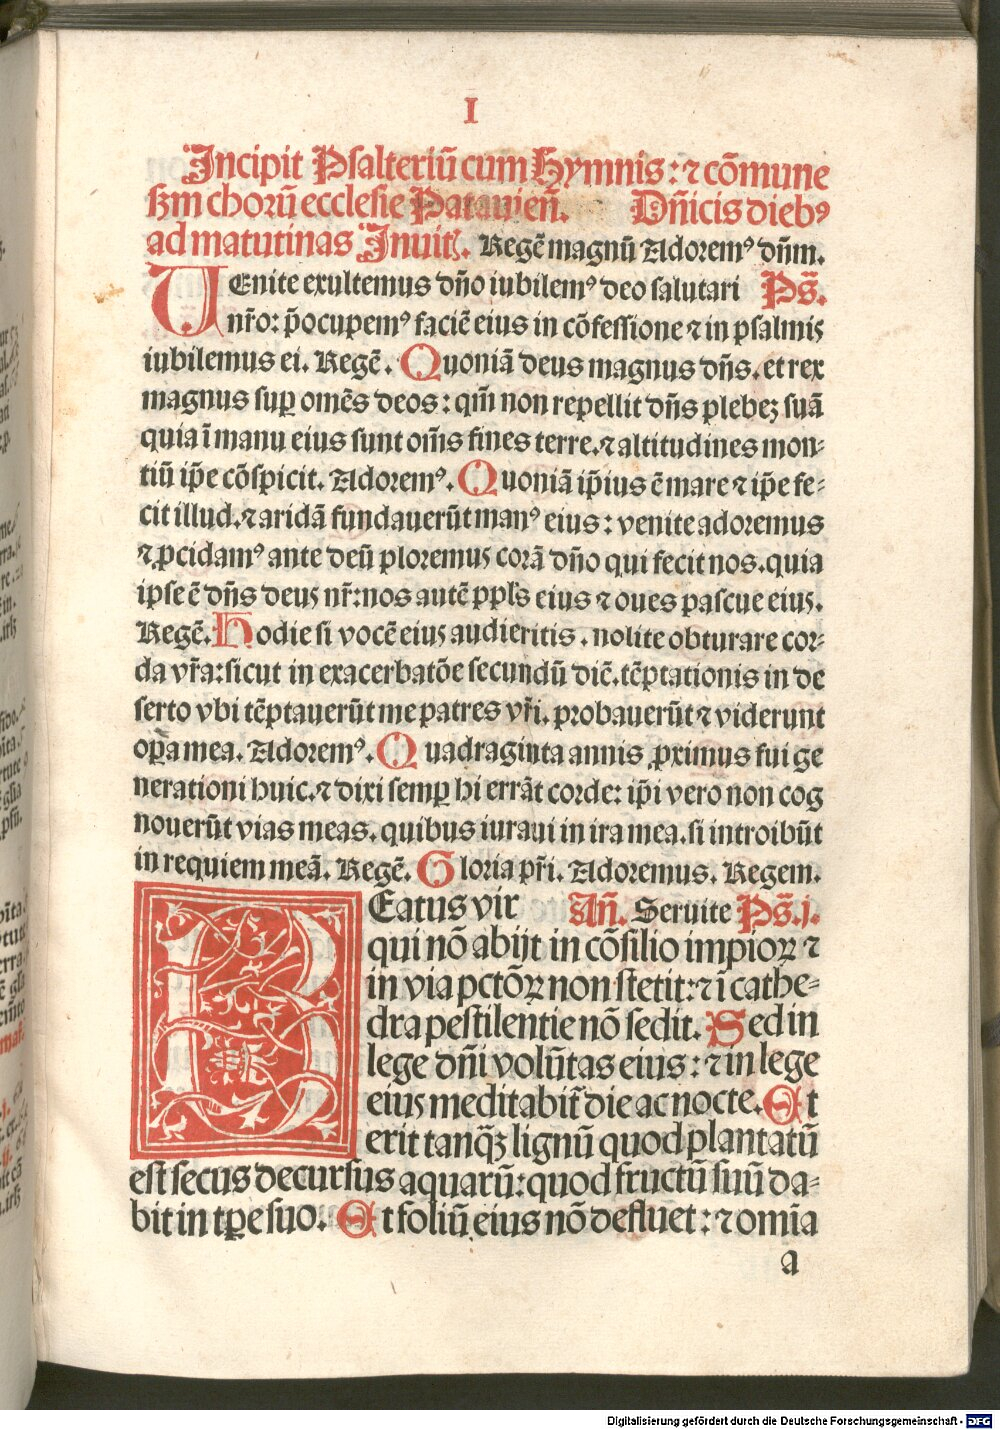 I
Incipit Psalteriū cum Hymnis: ⁊ cōmune
ſꝫm chorū eccleſie Patauieñ. Dñicis diebꝰ
ad matutinas Inuit. Regē magnū Adoremꝰ dñm.
VEnite exultemus dño iubilemꝰ deo ſalutari Ps̄.
nr̄o: p̄ocupemꝰ faciē eius in cōfeſſione ⁊ in pſalmis
iubilemus ei. Regē. Quoniā deus magnus dñs. et rex
magnus ſuꝑ omēs deos: qm̄ non repellit dñs plebeꝫ ſuā
quia ī manu eius ſunt om̄s fines terre. ⁊ altitudines mon-
tiū ip̄e cōſpicit. Adoremꝰ. Quoniā ip̄ius ē mare ⁊ ip̄e fe-
cit illud. ⁊ aridā fundauerūt manꝰ eius: venite adoremus
⁊ ꝓcidamꝰ ante deū ploremus corā dño qui fecit nos. quia
ipſe ē dñs deus nr̄: nos autē ppl̄s eius ⁊ oues paſcue eius.
Regē. Hodie ſi vocē eius audieritis. nolite obturare cor-
da vr̄a: ſicut in exacerbatōe ſecundū diē. tēptationis in de
ſerto vbi tēptauerūt me patres vr̄i. probauerūt ⁊ viderunt
oꝑa mea. Adoremꝰ. Quadraginta annis ꝓximus fui ge
nerationi huic. ⁊ dixi ſemꝑ hi errāt corde: ip̄i vero non cog
nouerūt vias meas. quibus iuraui in ira mea. ſi introibūt
in requiem meā. Regē. Gloria pr̄i. Adoremus. Regem.
BEatus vir Añ. Seruite Ps̄. j.
qui nō abijt in cōſilio impioꝝ ⁊
in via pctōꝝ non ſtetit: ⁊ ī cathe-
dra peſtilentie nō ſedit. Sed in
lege dñi volūtas eius: ⁊ in lege
eius meditabit̄ die ac nocte. Et
erit tanq̄ꝫ lignū quod plantatū
eſt ſecus decurſus aquarū: quod fructū ſuū da-
bit in tꝑe ſuo. Et foliū eius nō defluet: ⁊ omīa
a
Digitalisierung gefördert durch die Deutsche Forschungsgemeinschaft - DFG